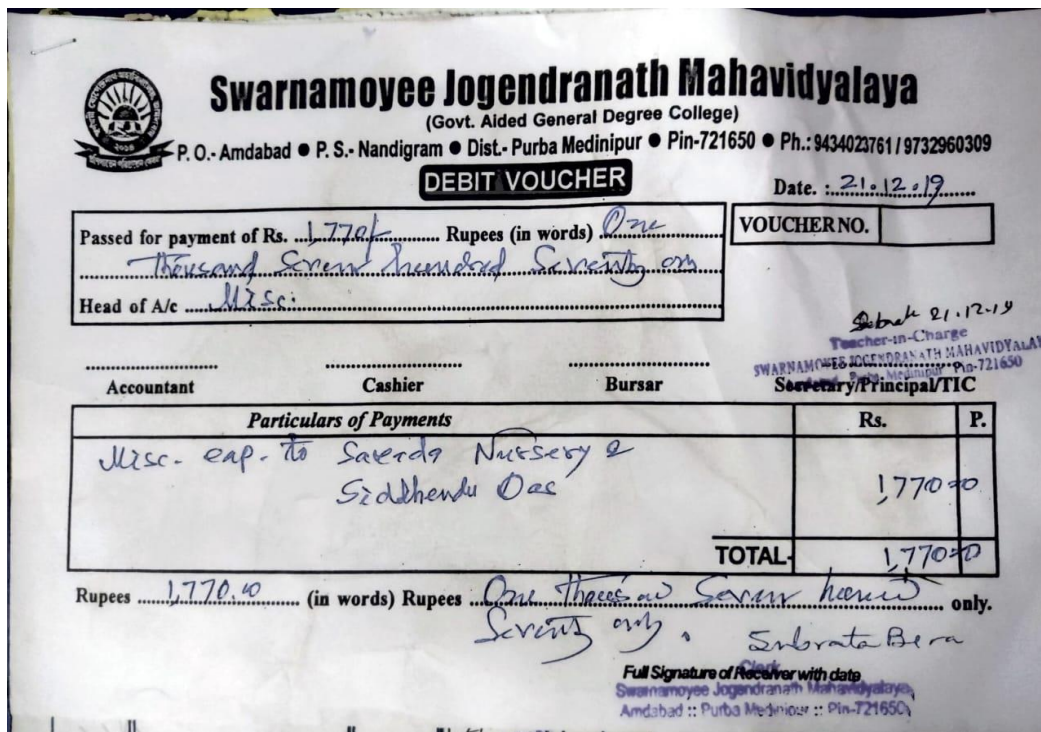 Swarnamoyee Jogendranath Mahavidyalaya
(Govt. Aided General Degree College)
P. O.- Amdabad ● P. S.- Nandigram ● Dist.- Purba Medinipur ● Pin-721650 ● Ph.: 9434023761 / 9732960309
DEBIT VOUCHER
Date. : 21.12.19
Passed for payment of Rs. 1,770/- Rupees (in words) One
Thousand Seven hundred Seventy only
Head of A/c Misc.
VOUCHER NO.
21.12.19
Teacher-in-Charge
SWARNAMOYEE JOGENDRANATH MAHAVIDYALAY
Purba Medinipur Pin-721650
Accountant Cashier Bursar Secretary/Principal/TIC
Particulars of Payments Rs. P.
Misc. exp. to Sarada Nursery &
Siddhendu Das 1,770=00
TOTAL- 1,770=00
Rupees 1,770.00 (in words) Rupees One thousand Seven hundred only.
Seventy only.
Subrata Bera
Full Signature of Receiver with date
Clerk
Swarnamoyee Jogendranath Mahavidyalaya
Amdabad :: Purba Medinipur :: Pin-721650